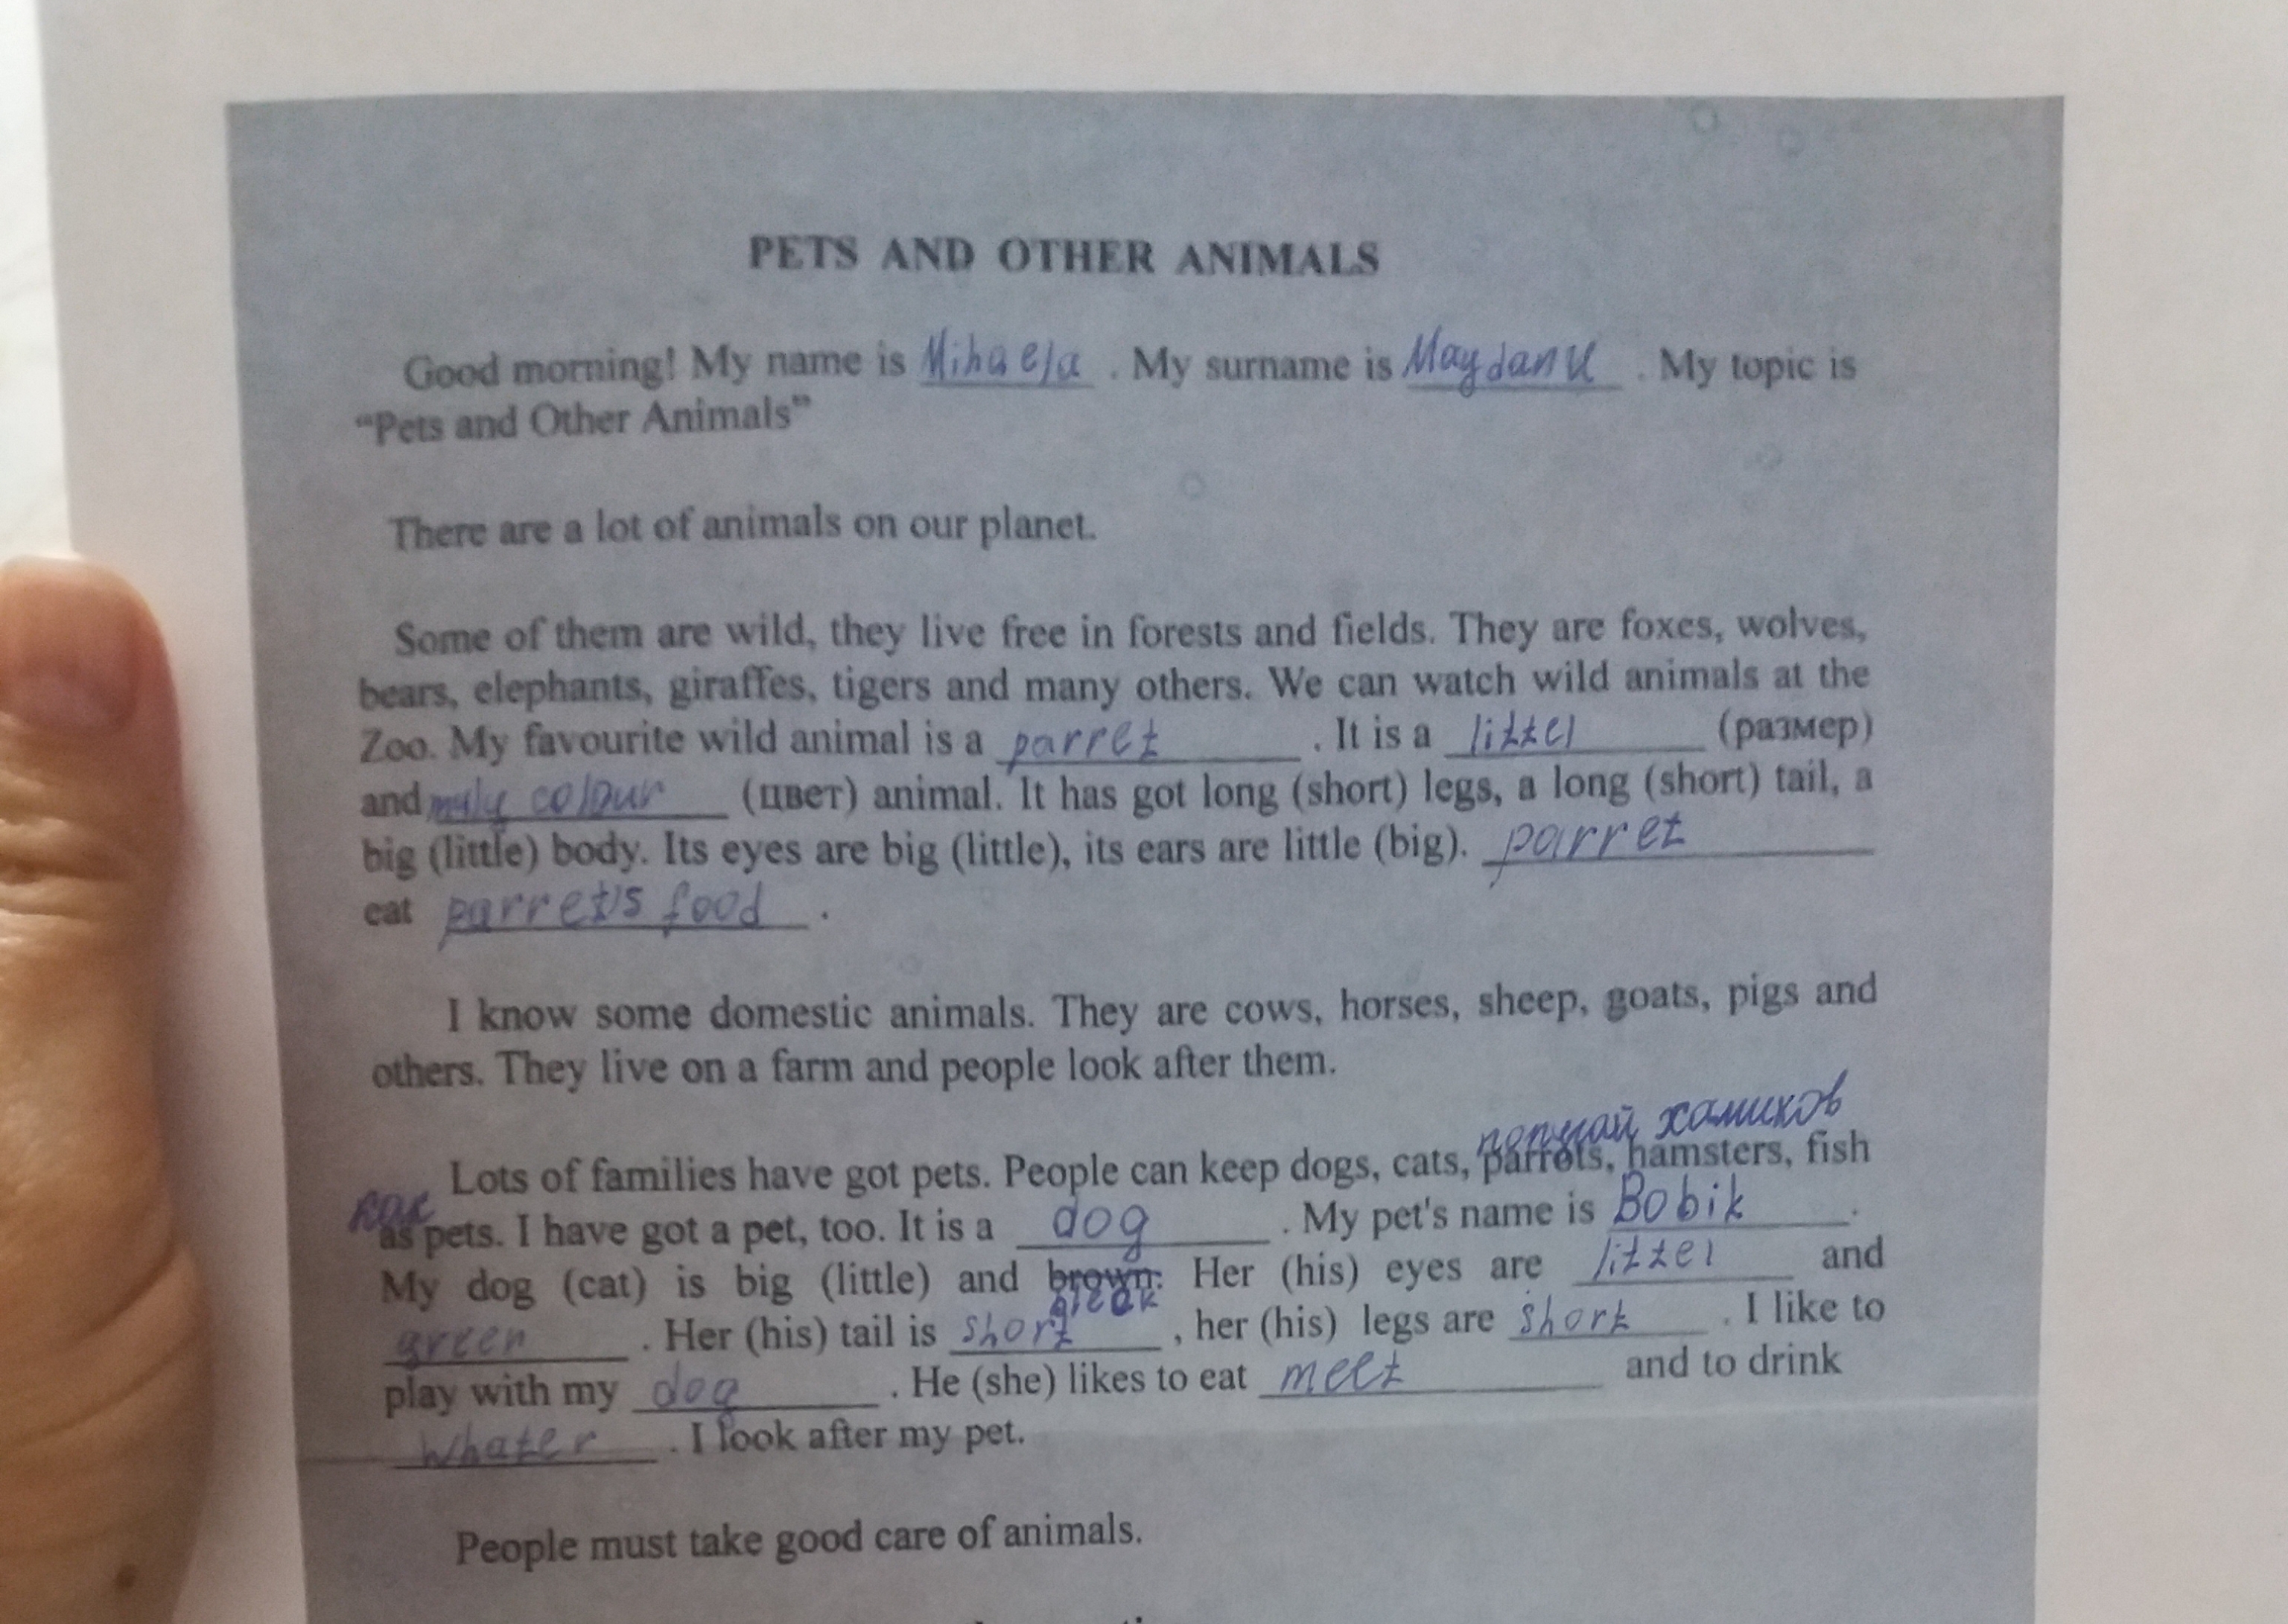 PETS AND OTHER ANIMALS
Good morning! My name is Mihaela . My surname is Maydanu . My topic is
“Pets and Other Animals”
There are a lot of animals on our planet.
Some of them are wild, they live free in forests and fields. They are foxes, wolves,
bears, elephants, giraffes, tigers and many others. We can watch wild animals at the
Zoo. My favourite wild animal is a parret . It is a littel (размер)
and colour (цвет) animal. It has got long (short) legs, a long (short) tail, a
big (little) body. Its eyes are big (little), its ears are little (big). parret
eat parret's food .
I know some domestic animals. They are cows, horses, sheep, goats, pigs and
others. They live on a farm and people look after them.
попугай хамиков
Lots of families have got pets. People can keep dogs, cats, parrots, hamsters, fish
как
as pets. I have got a pet, too. It is a dog . My pet's name is Bobik .
My dog (cat) is big (little) and brown: Her (his) eyes are littel and
green . Her (his) tail is short , her (his) legs are short . I like to
play with my dog . He (she) likes to eat meet and to drink
whater . I look after my pet.
People must take good care of animals.